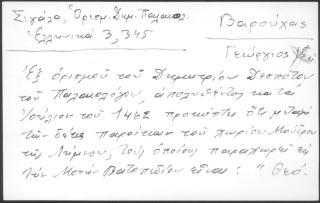 Σιγάλα, Ὁρισμ. Δημ. Παλαιολ.
Ἑλληνικά 3, 345
Βαρούχας
Γεώργιος
Ἐξ ὁρισμοῦ τοῦ Δημητρίου Δεσπότου
τοῦ Παλαιολόγου, ἀπολυθέντος κατά
Ἰούλιον τοῦ 1462 προκύπτει ὅτι μεταξύ
τῶν δέκα παροίκων τοῦ χωρίου Μούδρου
τῆς Λήμνου, τούς ὁποίους παραχωρεῖ εἰς
τήν Μονήν Βατοπεδίου εἶναι: "Θεό.